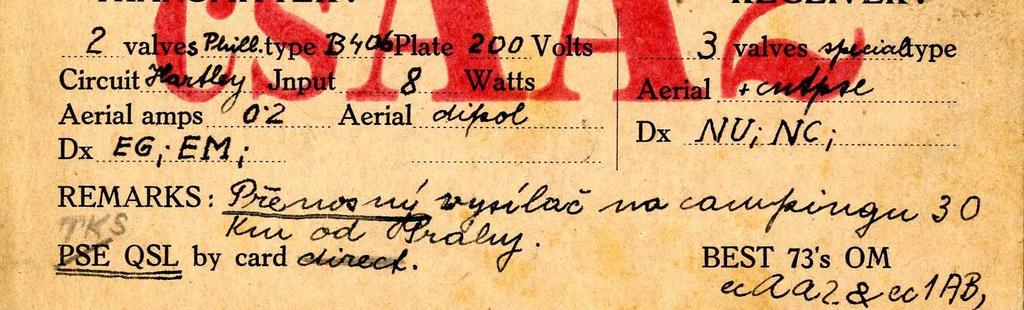 CSAA2
2 valves Phill. type B406 Plate 200 Volts
3 valves special type
Circuit Hartley Jnput 8 Watts
Aerial
Aerial amps 0.2 Aerial dipol
Dx NU; NC;
Dx EG; EM;
REMARKS: Přenosný vysílač na campingu 30
km od Prahy.
TKS
PSE QSL by card direct.
BEST 73's OM
ecAA2 & ec1AB,